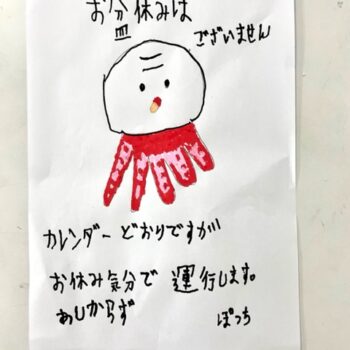 お盆休みは
ございません
カレンダーどおりですが
お休み気分で運行します。
あしからず
ぼっち